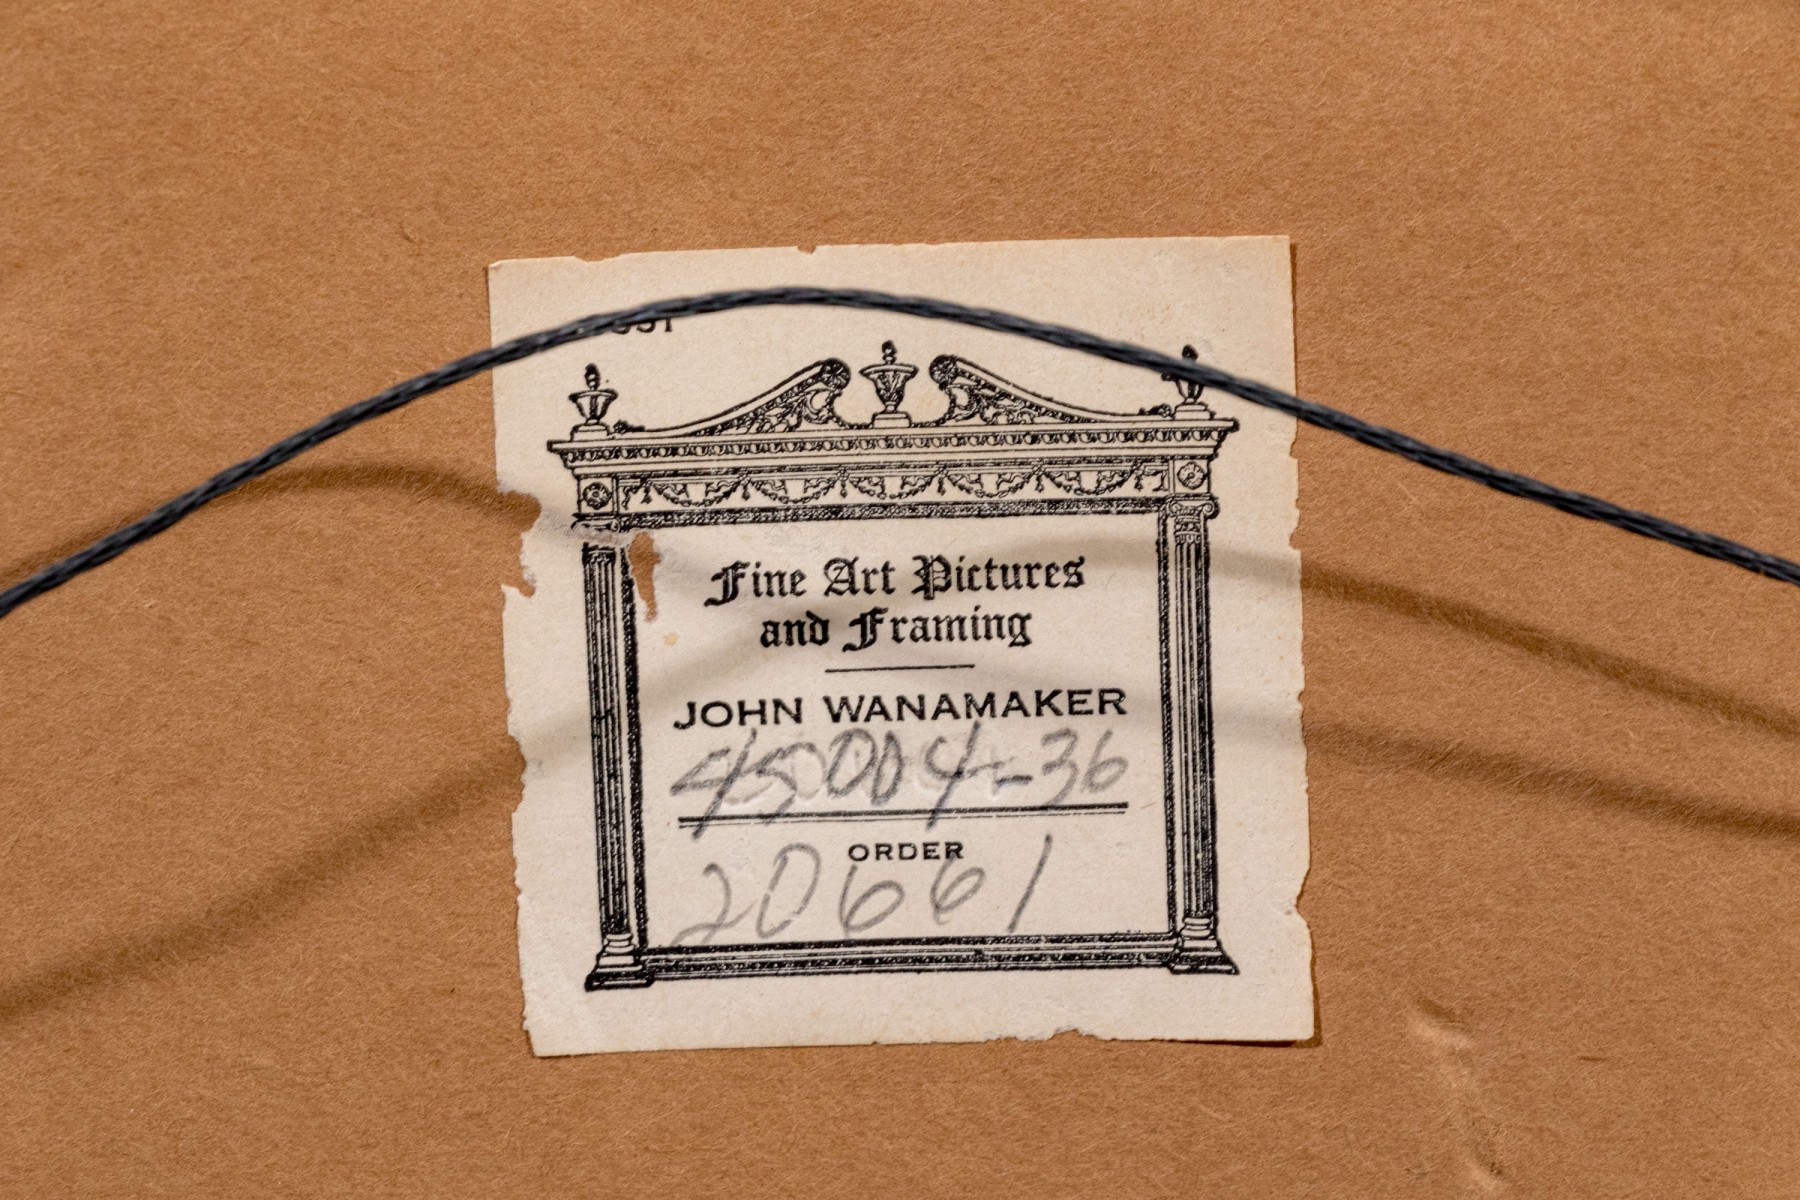 Fine Art Pictures
and Framing
JOHN WANAMAKER
45004-36
ORDER
20661